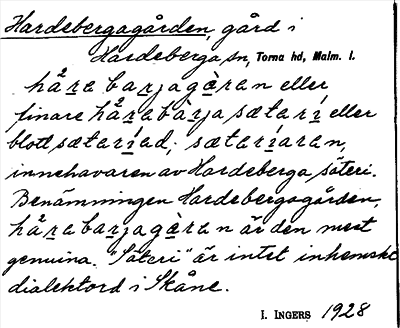 Hardebergagården, gård i
Hardeberga sn, Torna hd, Malm. l.
hårabarjagèran eller
finare hårabàrja sæterí eller
blott sæteríad; sæteríaran,
innehavaren av Hardeberga säteri.
Benämningen Hardebergagården,
hårabarjagèran är den mest
genuina. "Säteri" är intet inhemskt
dialektord i Skåne.
I. INGERS 1928